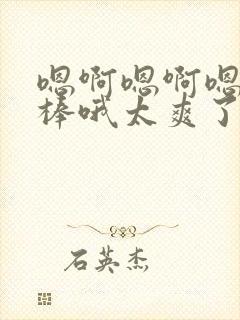 嗯啊嗯啊嗯
棒哦太爽了
石英杰